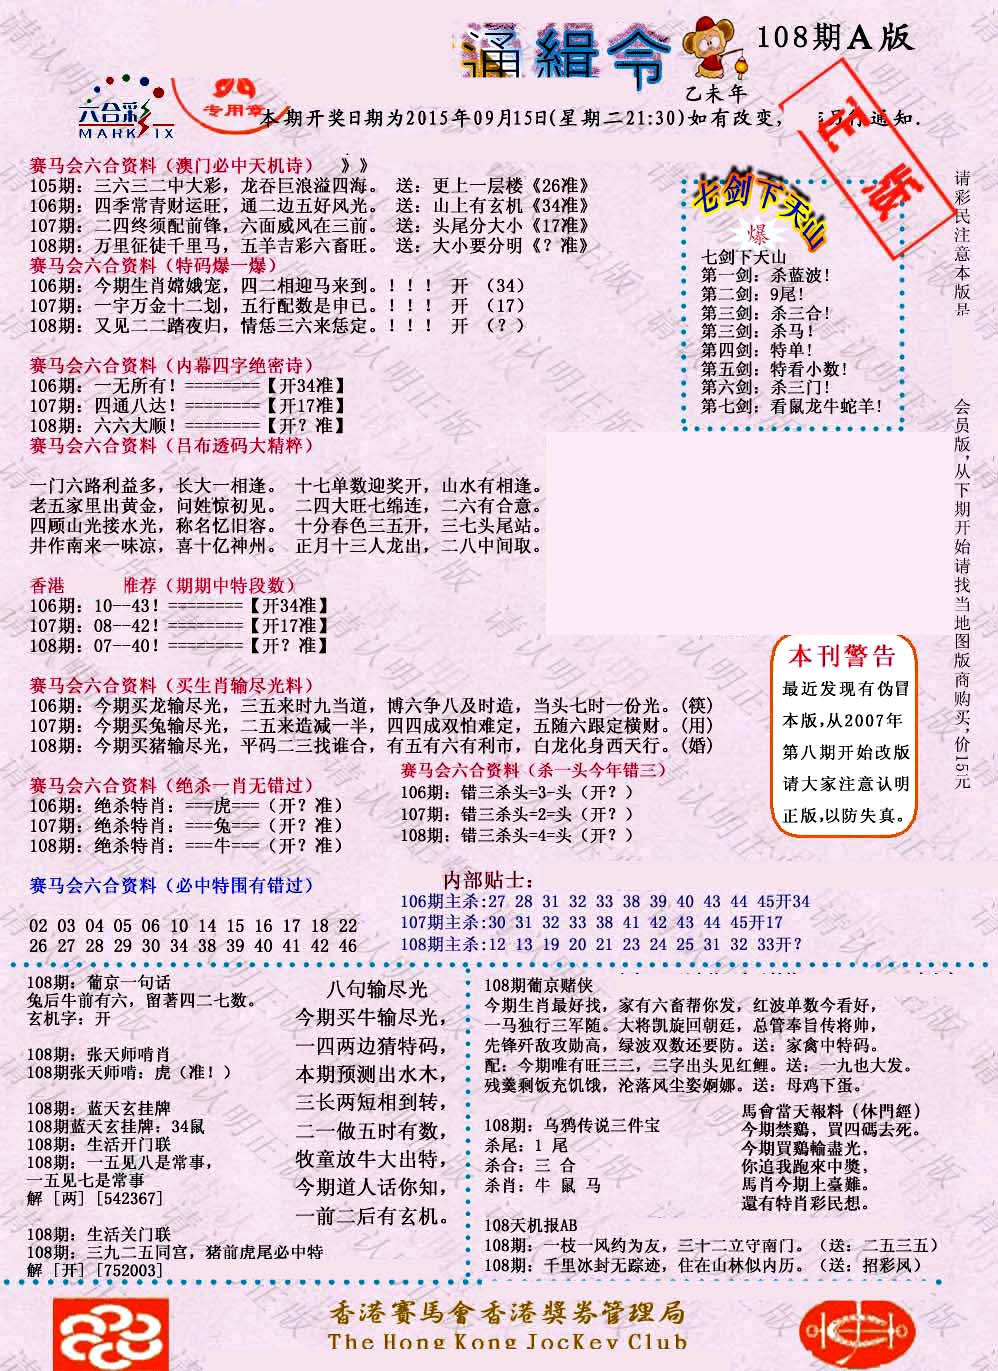 通緝令
108期A版
乙未年
六合彩
MARK SIX
专用章
本期开奖日期为2015年09月15日(星期二21:30)如有改变,
通知.
正版
赛马会六合资料（澳门必中天机诗） 》》
105期：三六三二中大彩，龙吞巨浪溢四海。 送：更上一层楼《26准》
106期：四季常青财运旺，通二边五好风光。 送：山上有玄机《34准》
107期：二四终须配前锋，六面威风在三前。 送：头尾分大小《17准》
108期：万里征徒千里马，五羊吉彩六畜旺。 送：大小要分明《？准》
赛马会六合资料（特码爆一爆）
106期：今期生肖嫦娥宠，四二相迎马来到。！！！ 开 （34）
107期：一宇万金十二划，五行配数是申已。！！！ 开 （17）
108期：又见二二踏夜归，情恁三六来恁定。！！！ 开 （？）
赛马会六合资料（内幕四字绝密诗）
106期：一无所有！========【开34准】
107期：四通八达！========【开17准】
108期：六六大顺！========【开？准】
赛马会六合资料（吕布透码大精粹）
一门六路利益多，长大一相逢。 十七单数迎奖开，山水有相逢。
老五家里出黄金，问姓惊初见。 二四大旺七绵连，二六有合意。
四顾山光接水光，称名忆旧容。 十分春色三五开，三七头尾站。
井作南来一味凉，喜十亿神州。 正月十三人龙出，二八中间取。
香港 推荐（期期中特段数）
106期：10--43！========【开34准】
107期：08--42！========【开17准】
108期：07--40！========【开？准】
赛马会六合资料（买生肖输尽光料）
106期：今期买龙输尽光，三五来时九当道，博六争八及时造，当头七时一份光。(筷)
107期：今期买兔输尽光，二五来造减一半，四四成双怕难定，五随六跟定横财。(用)
108期：今期买猪输尽光，平码二三找谁合，有五有六有利市，白龙化身西天行。(婚)
赛马会六合资料（绝杀一肖无错过）
106期：绝杀特肖：===虎===（开？准）
107期：绝杀特肖：===兔===（开？准）
108期：绝杀特肖：===牛===（开？准）
赛马会六合资料（杀一头今年错三）
106期：错三杀头=3-头（开？）
107期：错三杀头=2=头（开？）
108期：错三杀头=4=头（开？）
赛马会六合资料（必中特围有错过）
02 03 04 05 06 10 14 15 16 17 18 22
26 27 28 29 30 34 38 39 40 41 42 46
内部贴士：
106期主杀:27 28 31 32 33 38 39 40 43 44 45开34
107期主杀:30 31 32 33 38 41 42 43 44 45开17
108期主杀:12 13 19 20 21 23 24 25 31 32 33开？
七剑下天山
爆
七剑下天山
第一剑：杀蓝波！
第二剑：9尾！
第三剑：杀三合！
第三剑：杀马！
第四剑：特单！
第五剑：特看小数！
第六剑：杀三门！
第七剑：看鼠龙牛蛇羊！
请彩民注意本版是
会员版，从下期开始请找当地图版商购买，价15元
本刊警告
最近发现有伪冒
本版,从2007年
第八期开始改版
请大家注意认明
正版,以防失真。
108期：葡京一句话
兔后牛前有六，留著四二七数。
玄机字：开
108期：张天师啃肖
108期张天师啃：虎（准！）
108期：蓝天玄挂牌
108期蓝天玄挂牌：34鼠
108期：生活开门联
108期：一五见八是常事，
一五见七是常事
解 [两] [542367]
108期：生活关门联
108期：三九二五同宫，猪前虎尾必中特
解 [开] [752003]
八句输尽光
今期买牛输尽光，
一四两边猜特码，
本期预测出水木，
三长两短相到转，
二一做五时有数，
牧童放牛大出特，
今期道人话你知，
一前二后有玄机。
108期葡京赌侠
今期生肖最好找，家有六畜帮你发，红波单数今看好，
一马独行三军随。大将凯旋回朝廷，总管奉旨传将帅，
先锋歼敌攻勋高，绿波双数还要防。送：家禽中特码。
配：今期唯有旺三三，三字出头见红鲤。送：一九也大发。
残羹剩饭充饥饿，沦落风尘姿婀娜。送：母鸡下蛋。
108期：乌鸦传说三件宝
杀尾：1 尾
杀合：三 合
杀肖：牛 鼠 马
馬會當天報料（休門經）
今期禁鷄，買四碼去死。
今期買鷄輸盡光，
你追我跑來中獎，
馬肖今期上臺難。
還有特肖彩民想。
108天机报AB
108期：一枝一风约为友，三十二立守南门。（送：二五三五）
108期：千里冰封无踪迹，住在山林似内历。（送：招彩风）
香港賽馬會香港獎券管理局
The Hong Kong Jockey Club